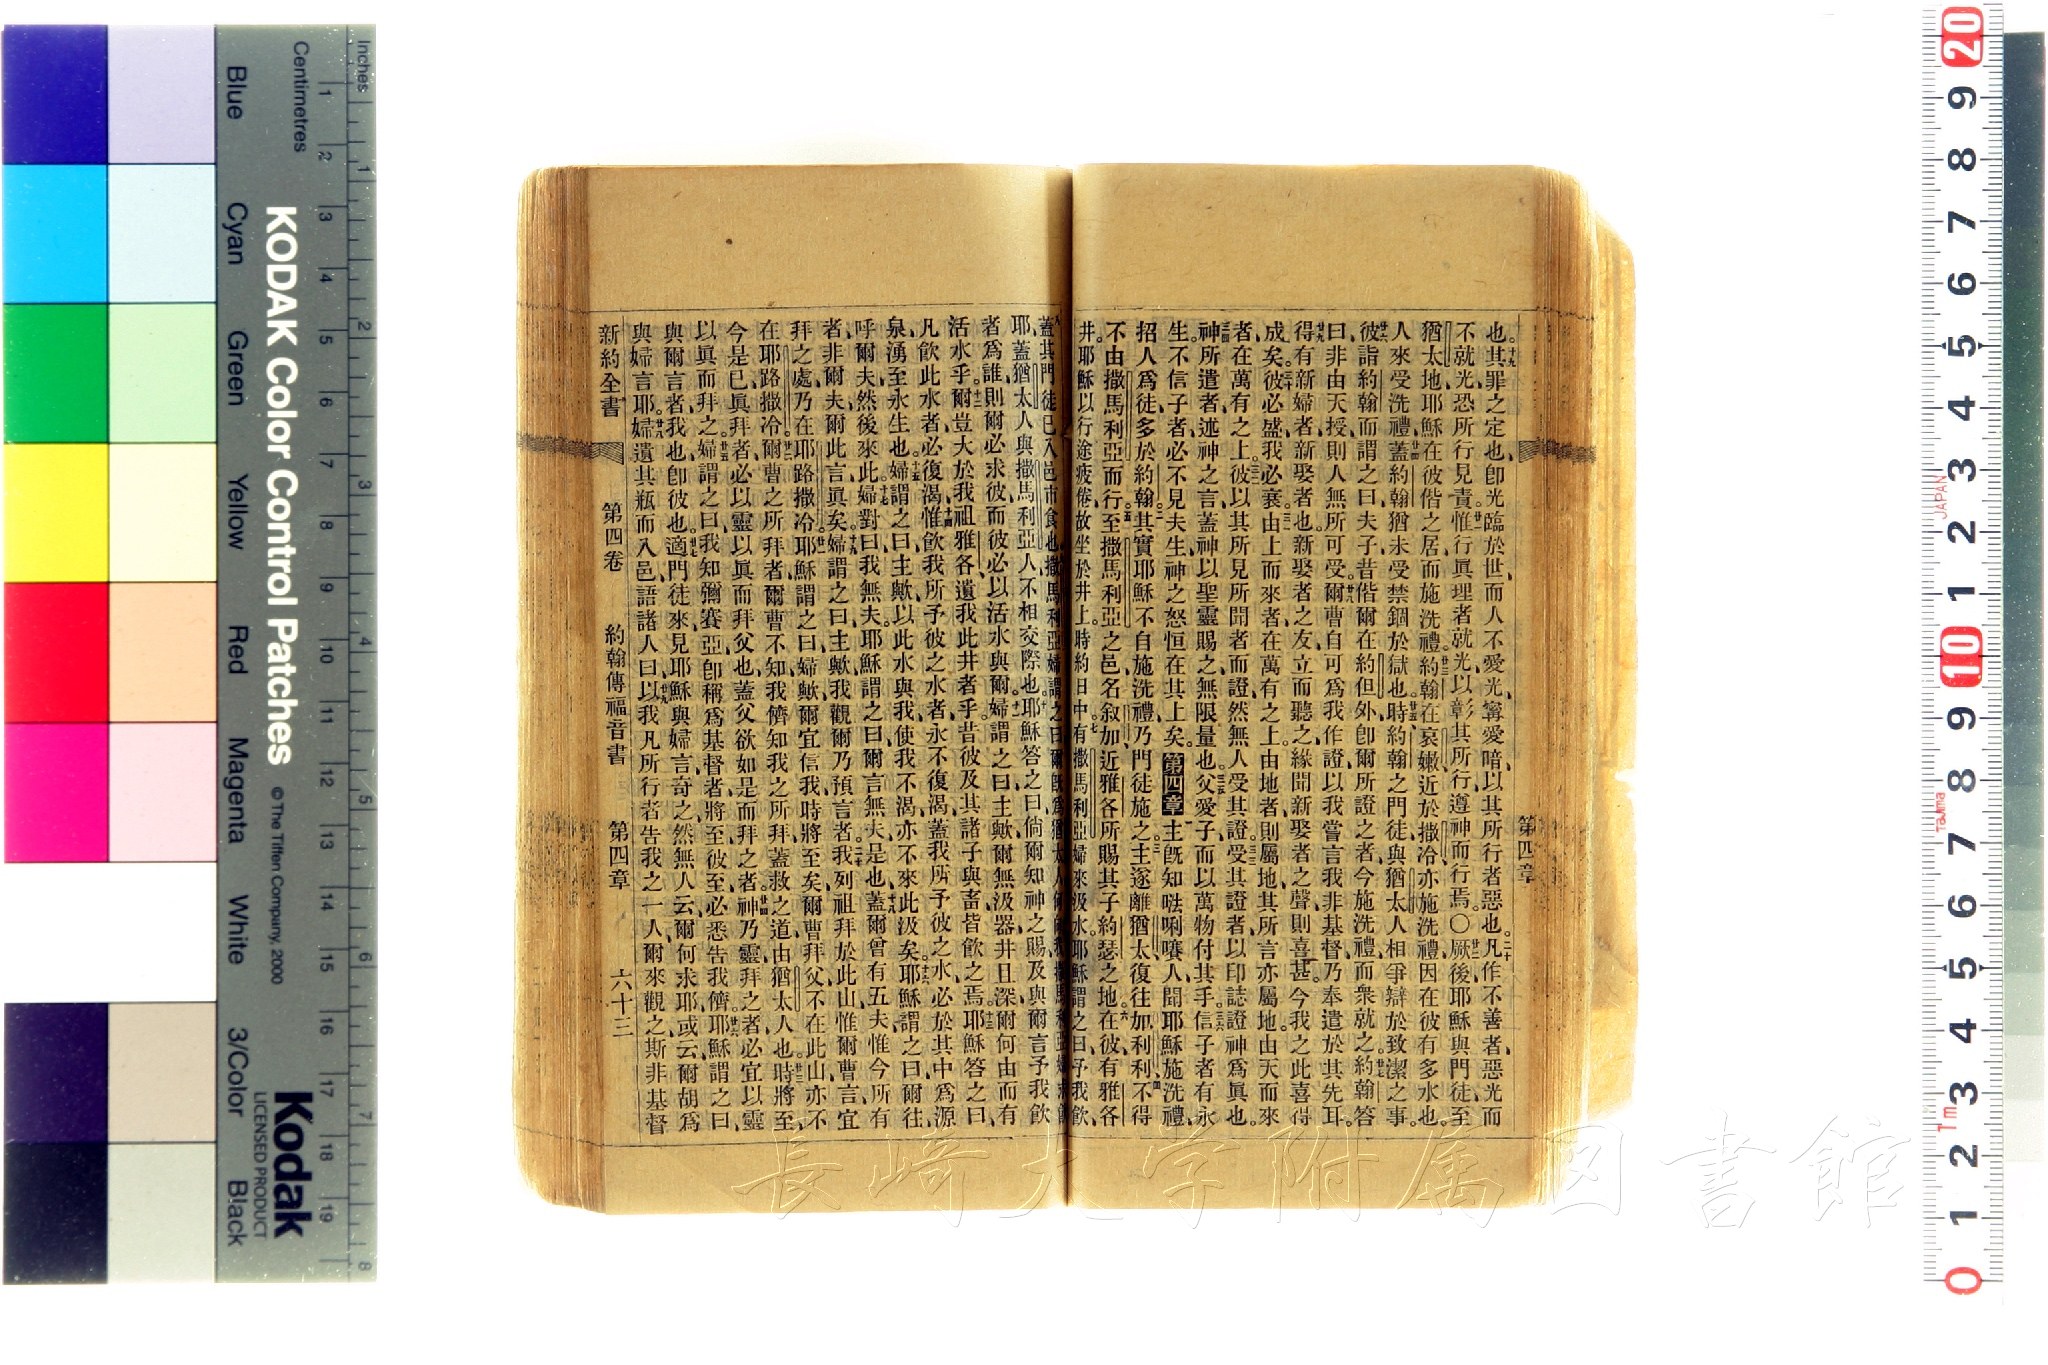 第四章
也、其罪之定也、卽光臨於世、而人不愛光、寗愛暗、以其所行者惡也。凡作不善者惡光、而
不就光、恐所行見責、惟行眞理者就光、以彰其所行遵神而行焉。○厥後耶穌與門徒至
猶太地、耶穌在彼偕之居、而施洗禮、約翰在哀嫩近於撒冷、亦施洗禮、因在彼有多水也、
人來受洗禮、蓋約翰猶未受禁錮於獄也、時約翰之門徒、與猶太人相爭辯於致潔之事。
彼詣約翰而謂之曰、夫子昔偕爾在約但外、卽爾所證之者、今施洗禮、而衆就之、約翰答
曰、非由天授、則人無所可受、爾曹自可爲我作證、以我嘗言我非基督、乃奉遣於其先耳。
得有新婦者新娶者也、新娶者之友、立而聽之、緣聞新娶者之聲則喜甚。今我之此喜得
成矣、彼必盛、我必衰、由上而來者、在萬有之上、由地者、則屬地、其所言亦屬地。由天而來
者、在萬有之上、彼以其所見所聞者而證、然無人受其證。受其證者、以印誌證神爲眞也。
神所遣者、述神之言、蓋神以聖靈賜之無限量也、父愛子、而以萬物付其手、信子者有永
生、不信子者、必不見夫生、神之怒恒在其上矣。第四章主旣知𠵽唎㘔人聞耶穌施洗禮、
招人爲徒、多於約翰、其實耶穌不自施洗禮、乃門徒施之、主遂離猶太、復往加利利、不得
不由撒馬利亞而行。至撒馬利亞之邑、名叙加、近雅各所賜其子約瑟之地。在彼有雅各
井、耶穌以行途疲倦、故坐於井上、時約日中、有撒馬利亞婦來汲水、耶穌謂之曰、予我飲、
者爲誰、則爾必求彼、而彼必以活水與爾、婦謂之曰、主歟、爾無汲器、井且深、爾何由而有
耶、蓋猶太人與撒馬利亞人不相交際也、耶穌答之曰、倘爾知神之賜、及與爾言予我飲
活水乎、爾豈大於我祖雅各、遺我此井者乎、昔彼及其諸子與畜皆飲之焉、耶穌答之曰、
凡飲此水者必復渴、惟飲我所予彼之水者、永不復渴、蓋我所予彼之水、必於其中爲源
泉湧至永生也、婦謂之曰、主歟、以此水與我、使我不渴、亦不來此汲矣、耶穌謂之曰、爾往
呼爾夫、然後來此、婦對曰、我無夫、耶穌謂之曰、爾言無夫是也、蓋爾曾有五夫、惟今所有
者、非爾夫、爾此言眞矣、婦謂之曰、主歟、我觀爾乃預言者、我列祖拜於此山、惟爾曹言宜
拜之處、乃在耶路撒冷、耶穌謂之曰、婦歟、爾宜信我、時將至矣、爾曹拜父、不在此山、亦不
在耶路撒冷、爾曹之所拜者、爾曹不知、我儕知我之所拜、蓋救之道由猶太人也、時將至、
今是已、眞拜者必以靈以眞而拜父也、蓋父欲如是而拜之者、神乃靈、拜之者必宜以靈
以眞而拜之、婦謂之曰、我知彌賽亞卽稱爲基督者將至、彼至必悉告我儕、耶穌謂之曰、
與爾言者、我也、卽彼也、適門徒來、見耶穌與婦言、奇之、然無人云、爾何求耶、或云、爾胡爲
與婦言耶、婦遺其瓶而入邑、語諸人曰、以我凡所行者告我之一人、爾來觀之、斯非基督
新約全書 第四卷 約翰傳福音書 第四章 六十三
KODAK Color Control Patches © The Tiffen Company, 2000
Kodak LICENSED PRODUCT
Inches
Centimetres
Blue Cyan Green Yellow Red Magenta White 3/Color Black
JAPAN
長崎大学附属図書館